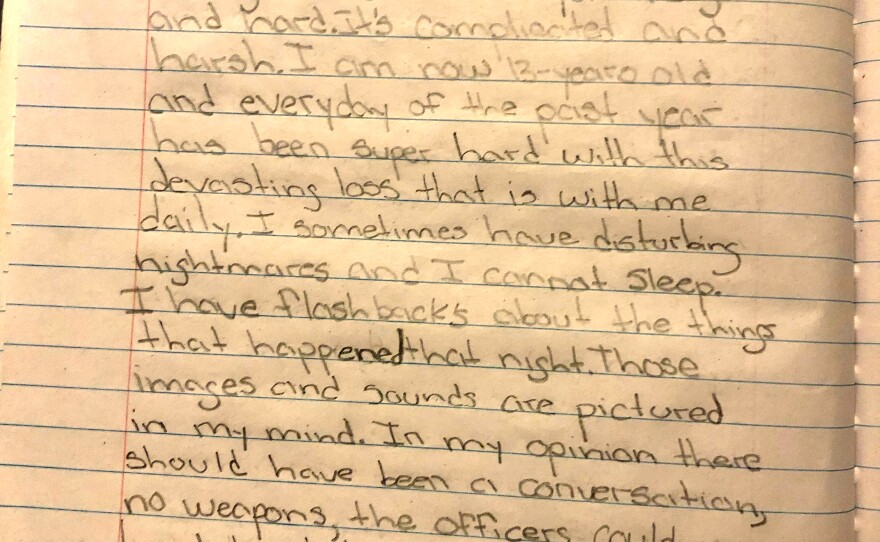 and hard. It's complicated and
harsh. I am now 13-years old
and everyday of the past year
has been super hard with this
devasting loss that is with me
daily. I sometimes have disturbing
nightmares and I cannot sleep.
I have flashbacks about the things
that happened that night. Those
images and sounds are pictured
in my mind. In my opinion there
should have been a conversation,
no weapons, the officers could